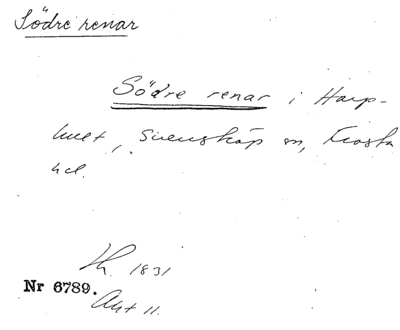 Södre renar
Södre renar i Harp-
hult, Svensköp sn, Frosta
hd.
Lh. 1831
Nr 6789.
Akt 11.